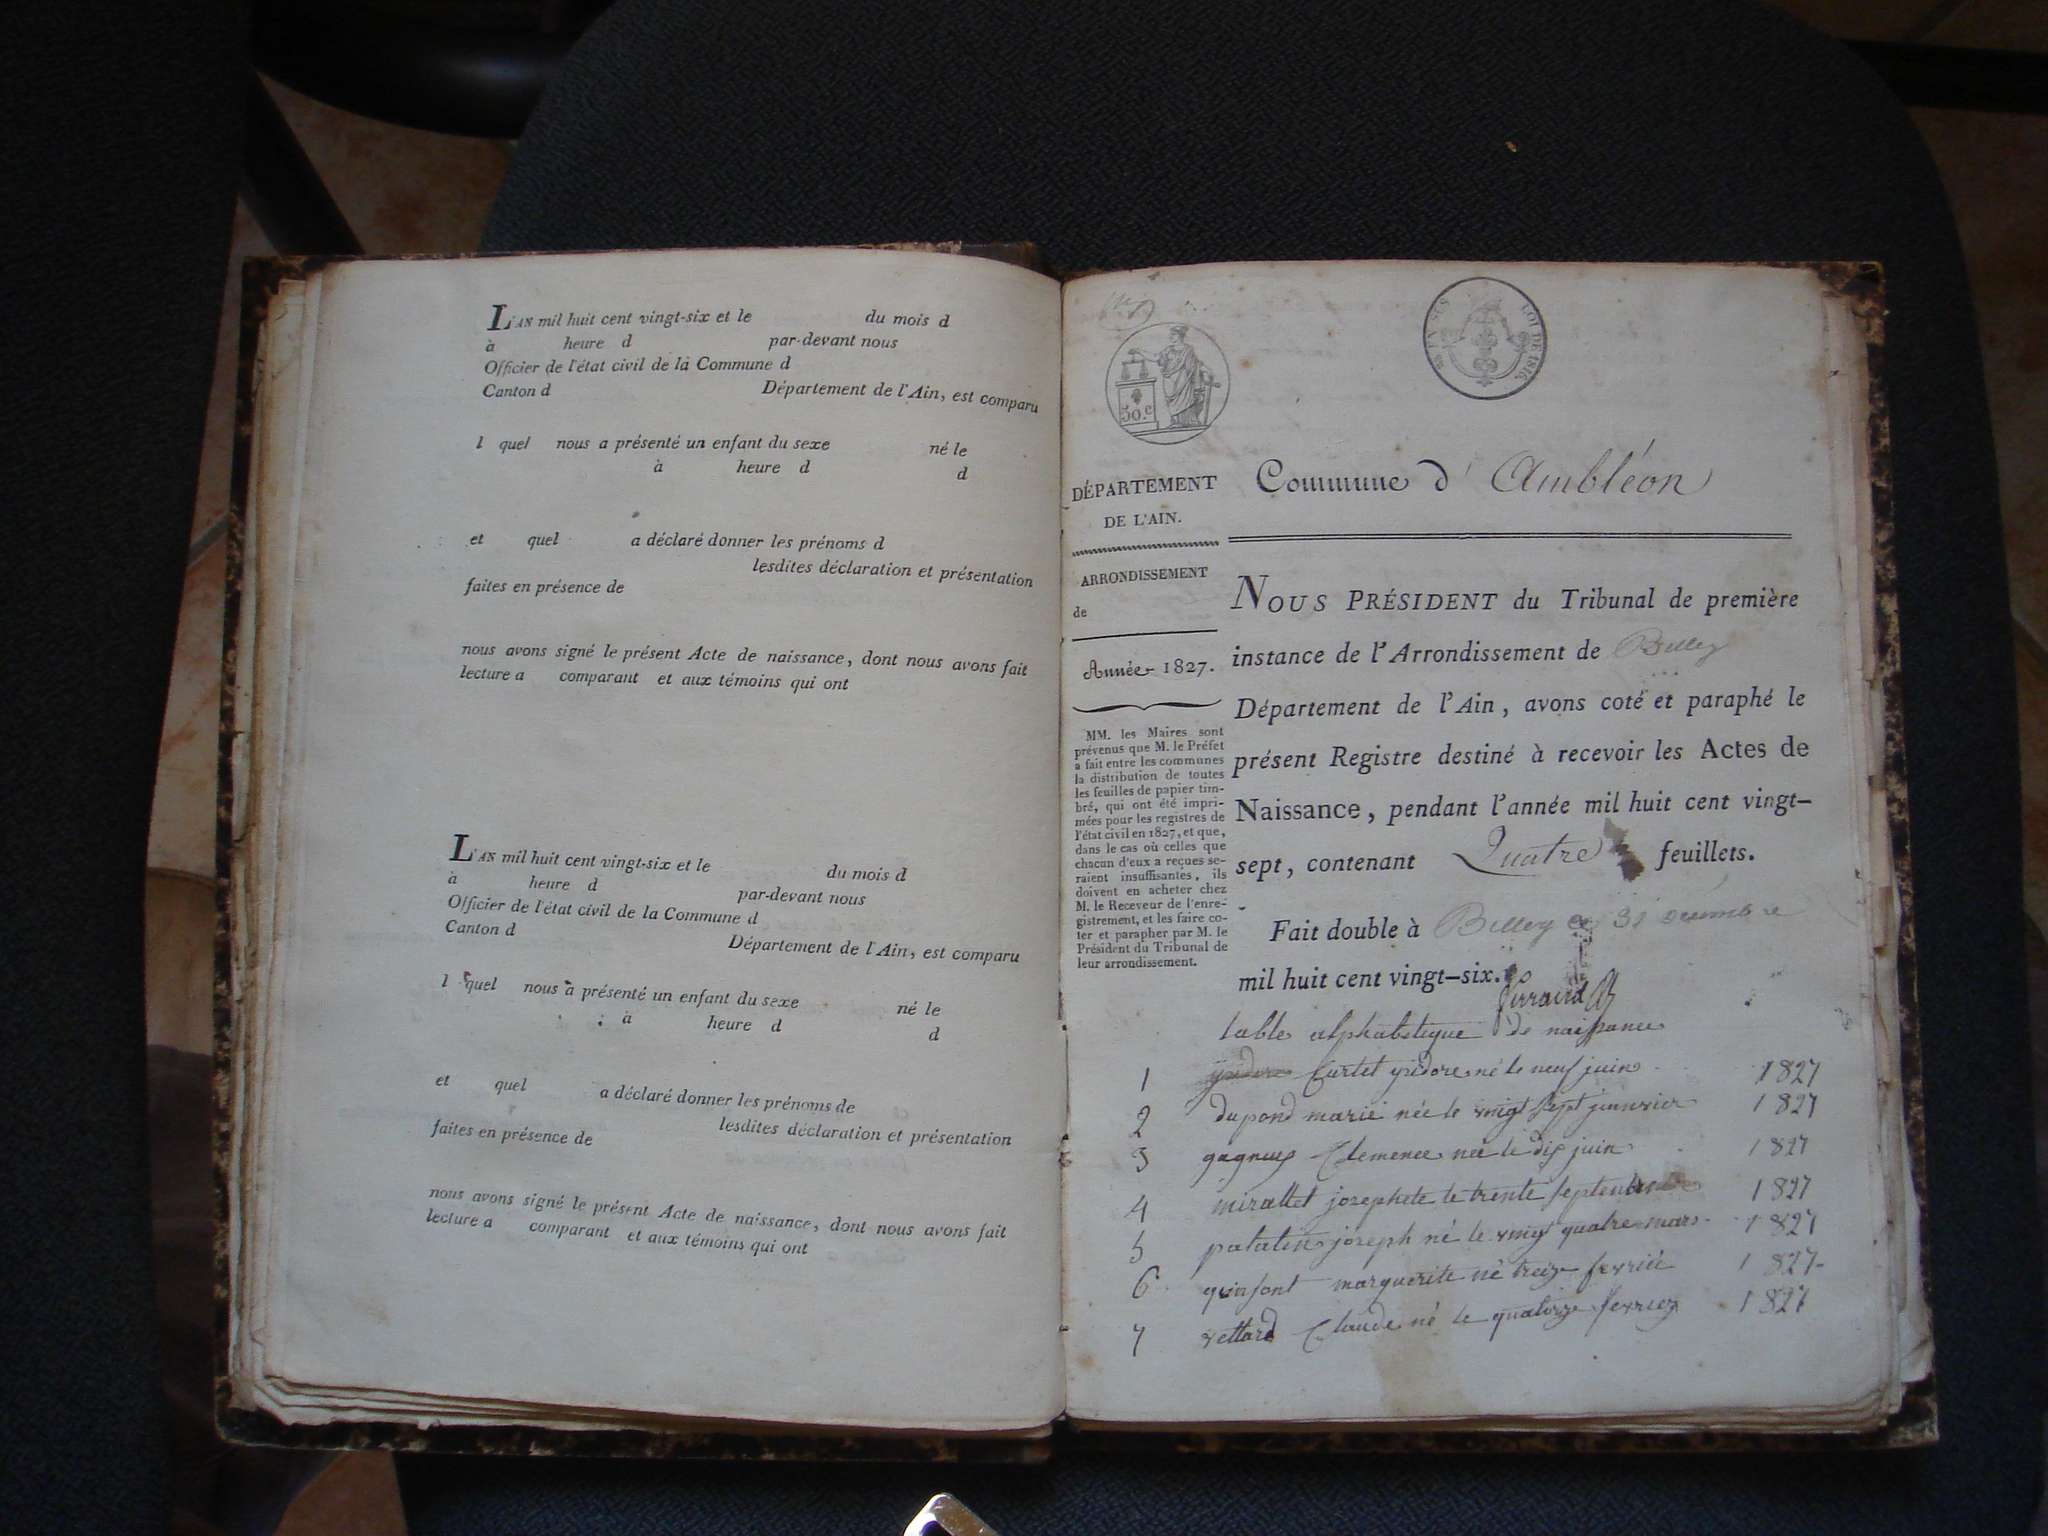 L'AN mil huit cent vingt-six et le du mois d
à heure d par-devant nous
Officier de l'état civil de la Commune d
Canton d Département de l'Ain, est comparu
l quel nous a présenté un enfant du sexe né le
à heure d d
et quel a déclaré donner les prénoms d
lesdites déclaration et présentation
faites en présence de
nous avons signé le présent Acte de naissance, dont nous avons fait
lecture a comparant et aux témoins qui ont
L'AN mil huit cent vingt-six et le du mois d
à heure d par-devant nous
Officier de l'état civil de la Commune d
Canton d Département de l'Ain, est comparu
l quel nous a présenté un enfant du sexe né le
à heure d d
et quel a déclaré donner les prénoms de
lesdites déclaration et présentation
faites en présence de
nous avons signé le présent Acte de naissance, dont nous avons fait
lecture a comparant et aux témoins qui ont
50.c
LOI DE 1816
DÉPARTEMENT
DE L'AIN.
ARRONDISSEMENT
de
Année 1827.
MM. les Maires sont
prévenus que M. le Préfet
a fait entre les communes
la distribution de toutes
les feuilles de papier tim-
bré, qui ont été impri-
mées pour les registres de
l'état civil en 1827, et que,
dans le cas où celles que
chacun d'eux a reçues se-
raient insuffisantes, ils
doivent en acheter chez
M. le Receveur de l'enre-
gistrement, et les faire co-
ter et parapher par M. le
Président du Tribunal de
leur arrondissement.
Commune d'Ambléon
NOUS PRÉSIDENT du Tribunal de première
instance de l'Arrondissement de Belley
Département de l'Ain, avons coté et paraphé le
présent Registre destiné à recevoir les Actes de
Naissance, pendant l'année mil huit cent vingt-
sept, contenant Quatre feuillets.
Fait double à Belley ce 31 décembre
mil huit cent vingt-six.
table alphabetique de naissance
1 Curtet ysidore né le neuf juin 1827
2 dupond marie née le vingt sept janvier 1827
3 Clemence née le dix juin 1827
4 mirallet josephete le trente septembre 1827
5 patatin joseph né le vingt quatre mars 1827
6 quinfont marguerite né treize fevrier 1827
7 vettard Claude né le quatorze fevrier 1827